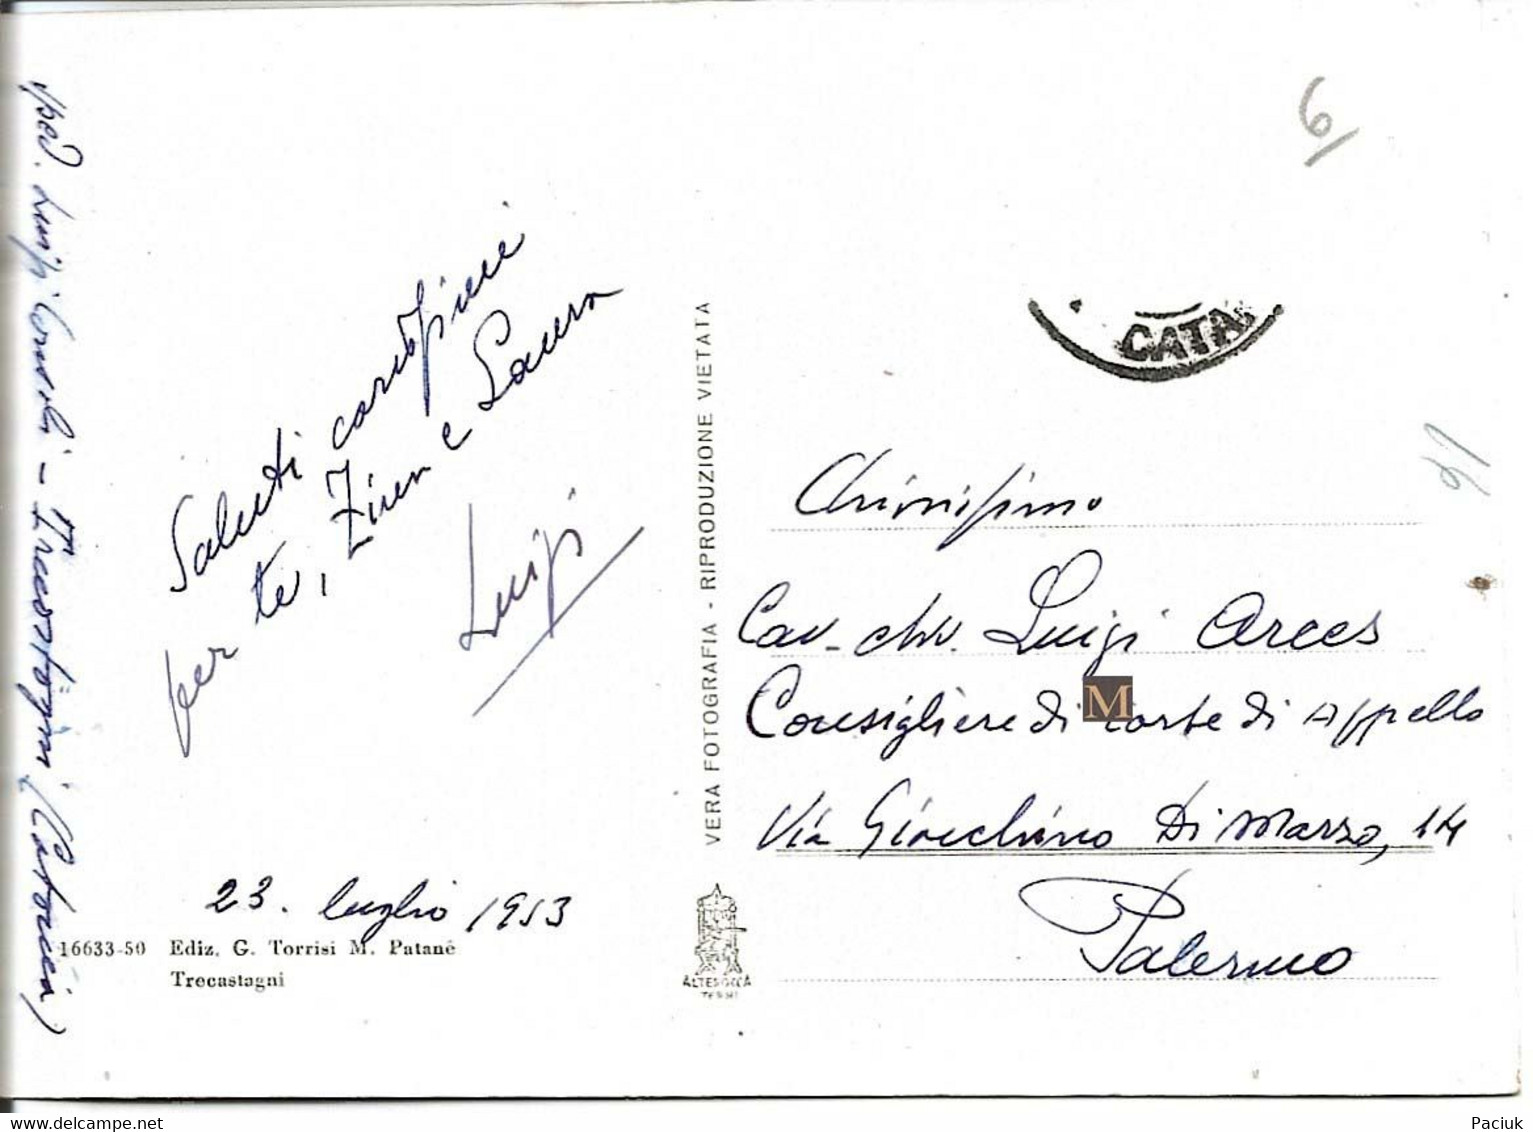 Saluti carissimi
per te, Zina e Laura
Luigi
23. luglio 1953
16633-50 Ediz. G. Torrisi M. Patanè
Trecastagni
sped. Luigi Consoli - Trecastagni (Catania)
VERA FOTOGRAFIA - RIPRODUZIONE VIETATA
ALTEROCCA
TERNI
6
CATA
Chiarissimo
Cav. Luigi Arces
Consigliere di Corte di Appello
Via Gioacchino Di Marzo, 14
Palermo
M
Paciuk